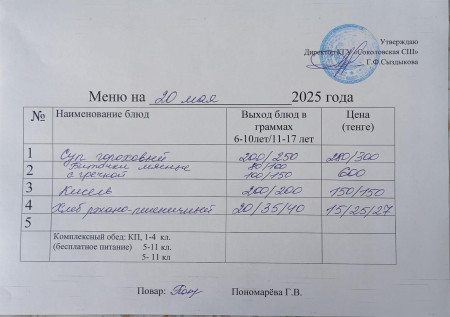 Утверждаю
Директор КГУ «Соколовская СШ»
Г.Ф.Сыздыкова
Меню на 20 мая 2025 года
№ Наименование блюд Выход блюд в граммах 6-10лет/11-17 лет Цена (тенге)
1 Суп гороховый 200/250 280/300
2 Биточки мясные с гречкой 80/100 100/150 600
3 Кисель 200/200 150/150
4 Хлеб ржано-пшеничный 20/35/40 15/25/27
5
Комплексный обед: КП, 1-4 кл.
(бесплатное питание) 5-11 кл.
5- 11 кл
Повар: Пономарёва Г.В.